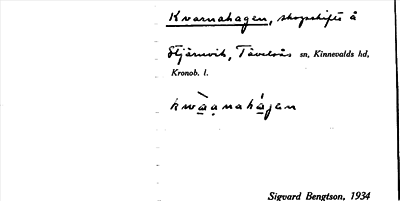 Kvarnahagen, skogsskifte å
Stjärnvik, Tävelsås sn, Kinnevalds hd,
Kronob. l.
kwàạnahágan
Sigvard Bengtson, 1934